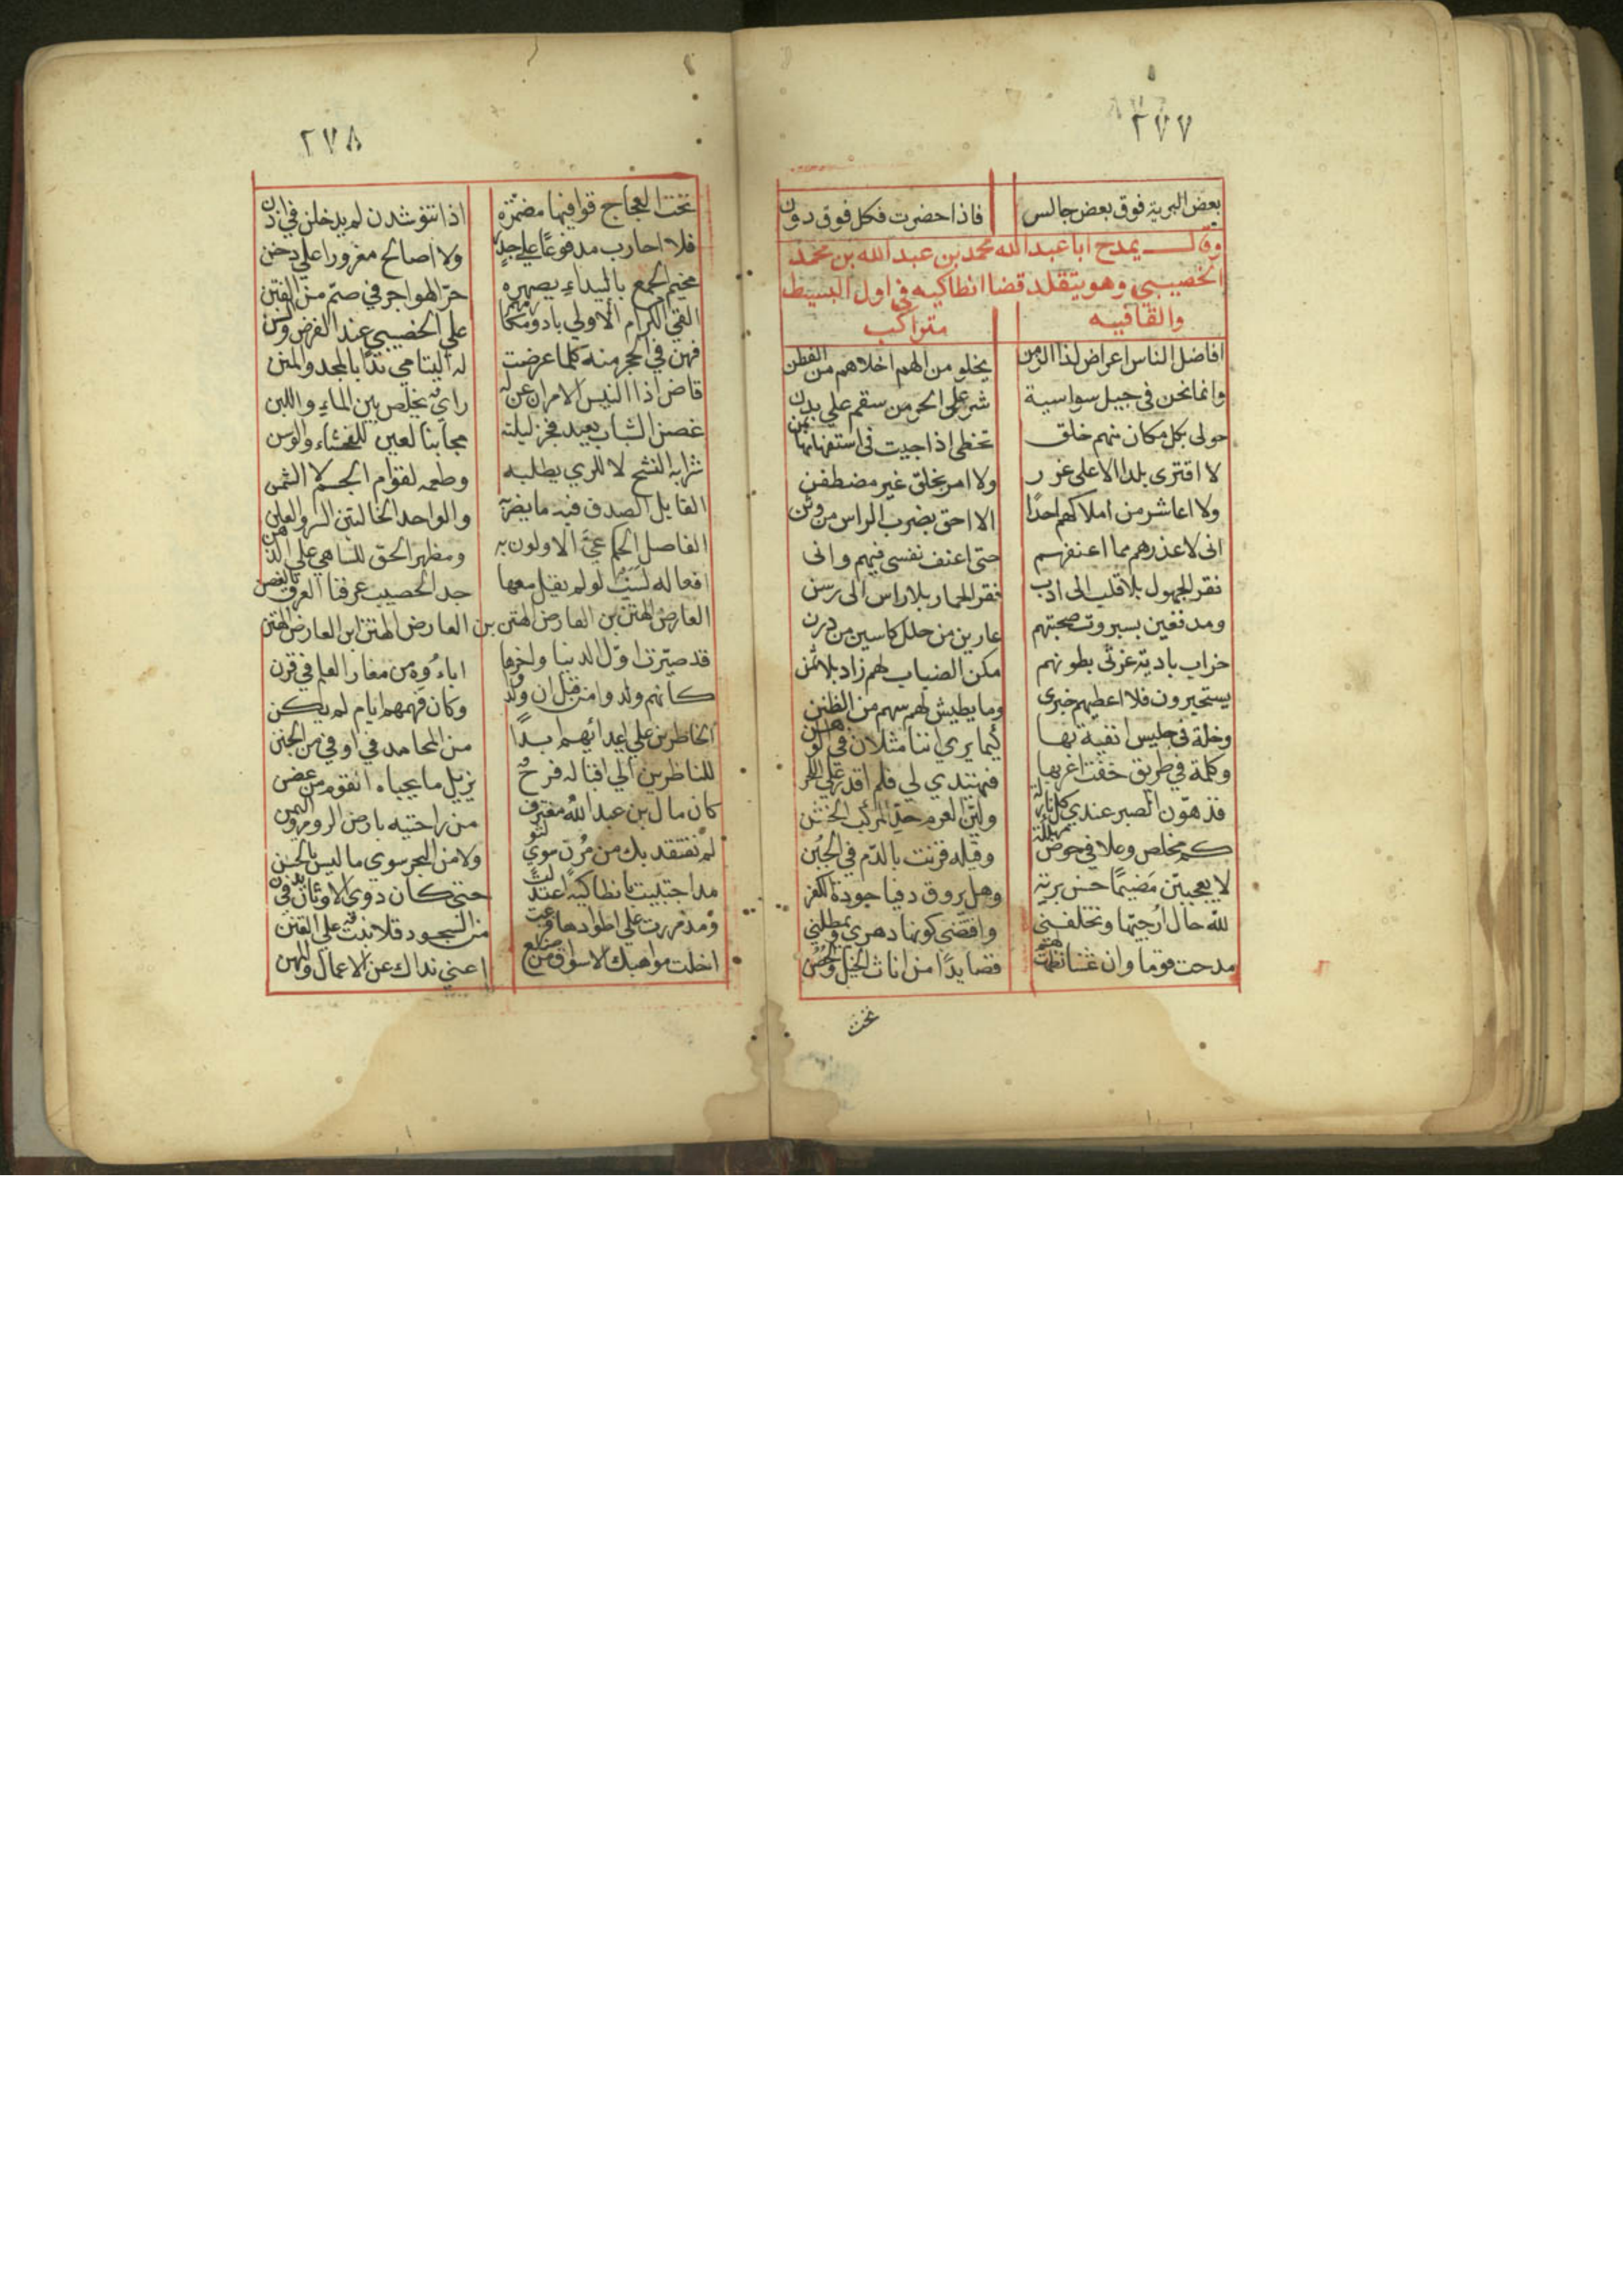 ٢٧٧
بعض البرية فوق بعض جالس فاذا حضرت فكل فوق دون
وقال يمدح ابا عبدالله محمد بن عبد الله بن محمد
الخصيبي وهو يتقلد قضا انطاكيه في اول البسيط
والقافيه متراكب
افاضل الناس اعراض لذا الزمن يخلو من الهم اخلاهم من الفطن
وانما نحن في جيل سواسية شر على الحر من سقم على بدن
حولى بكل مكان منهم خلق تخطى اذا جيت فى استفهامها بمن
لا اقترى بلدا الا على غرر ولا امر بخلق غير مضطغن
ولا اعاشر من املاكهم احدًا الا احق بضرب الراس من وثن
انى لاعذرهم مما اعنفهم حتى اعنف نفسى فيهم وانى
نقر الجهول بلا قلب الى ادب نقر الحمار بلا راس الى رسن
ومدقعين بسبروت صحبتهم عارين من حلل كاسين من درن
خراب بادية غرثى بطونهم مكن الضباب لهم زاد بلا ثمن
يستخبرون فلا اعطيهم خبرى وما يطيش لهم سهم من الظنن
وخلة فى جليس اتقيه بها كيما يرى اننا مثلان في الوهن
وكلمة في طريق خفت اعربها فيهتدي لي فلم اقدر على اللحن
قد هوّن الصبر عندي كل نازلة وليّن العزم حدّ المركب الخشن
كم مخلص وعلا في خوض مهلكة وقتله قرنت بالذم في الجبن
لا يعجبنّ مضيمًا حسن بزته وهل يروق دفينا جودة الكفن
لله حال ارجيها وتخلفني واقتضى كونها دهري ويمطلني
مدحت قوما وان عشنا نظمت لهم قصايدًا من اناث الخيل والحصن
تحت
٢٧٨
تحت العجاج قوافيها مضمّرة اذا تنوشدن لم يدخلن في اذن
فلا احارب مدفوعًا على جدر ولا اصالح مغرورا على دخن
مخيم الجمع بالبيداء يصهره حرّ الهواجر في صمّ من الفتن
القي الكرام الأولي بادوا مكارمهم على الخصيبي عند الفرض والسنن
فهن في الحجر منه كلما عرضت له اليتامي بدا بالمجد والمنن
قاض اذا التبس الامران عن له راي يخلص بين الماء واللبن
غصن الشباب بعيد فجر ليلته مجانبا لعين للفحشاء والوسن
شرابه النشح لا للري يطلبه وطعمه لقوام الجسم لا السّمن
القايل الصدق فيه ما يضربه والواحد الحالتين السر والعلن
الفاصل الحكم عيّ الاولون به ومظهر الحق للساهي على الذهن
افعاله نسب لو لم يقل معها جد الخصيب عرفنا العرق بالغصن
العارض الهتن بن العارض الهتن بن العارض الهتن ابن العارض الهتن
قد صيّرت اوّل الدنيا واخرها اباءوه من مغار العلم في قرن
كانهم ولدوا من قبل ان ولدوا وكان فهمهم ايام لم يكن
الخاطرين على اعدائهم ابدًا من المحامد في اوفي من الجنن
للناظرين الي اقباله فرح يزيل ما بجباه القوم من غضن
كان مال بن عبد الله مغترف من راحتيه بارض الروم واليمن
لم نفتقد بك من مزن سوي لثق ولا من البحر سوى ما ليس بالحسن
مذ اجتبيت بانطاكية اعتدلت حتى كان ذوي الاوتار في هدن
ومذ مررت على اطوادها قرعت من السجود فلا نبت على القنن
اخلت مواهبك الاسواق من صنع اغني نداك عن الاعمال والمهن